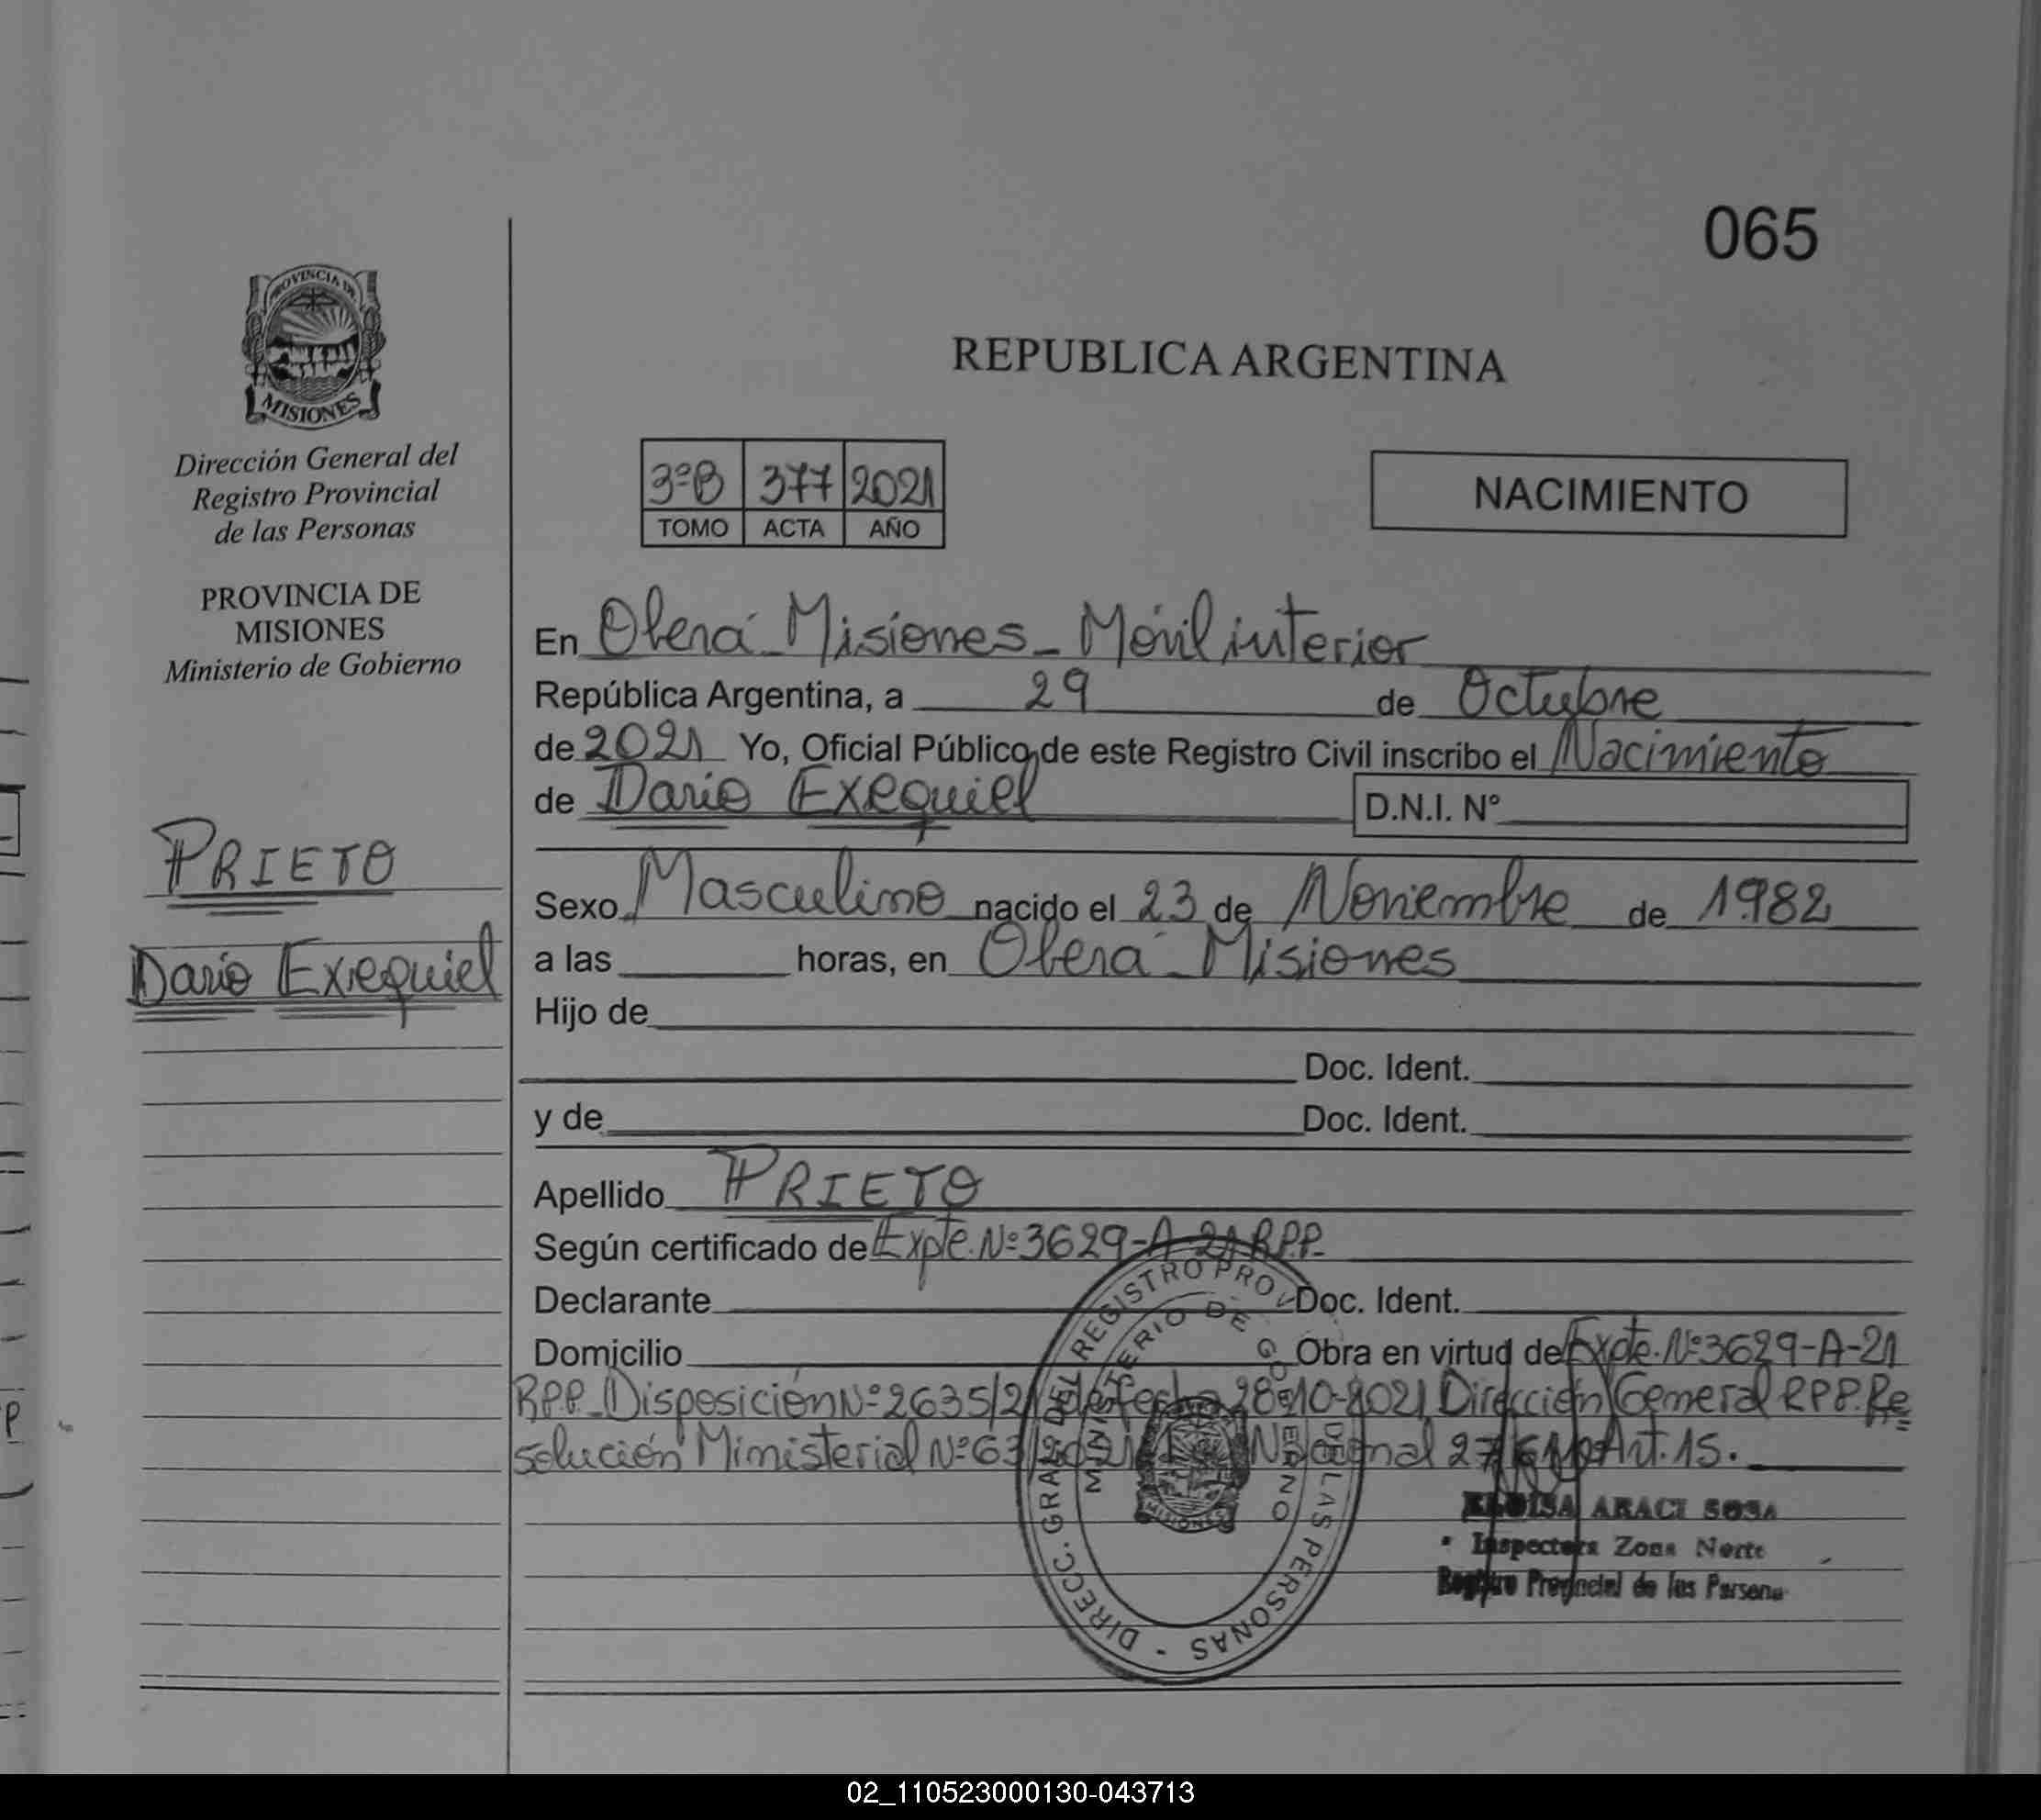 065
PROVINCIA DE
MISIONES
Dirección General del
Registro Provincial
de las Personas
PROVINCIA DE
MISIONES
Ministerio de Gobierno
PRIETO
Dario Exequiel
REPUBLICA ARGENTINA
3ºB 377 2021
TOMO ACTA AÑO
NACIMIENTO
En Oberá - Misiones - Móvil interior
República Argentina, a 29 de Octubre
de 2021 Yo, Oficial Público de este Registro Civil inscribo el Nacimiento
de Dario Exequiel D.N.I. Nº
Sexo Masculino nacido el 23 de Noviembre de 1982
a las horas, en Oberá - Misiones
Hijo de
Doc. Ident.
y de Doc. Ident.
Apellido PRIETO
Según certificado de Expte. Nº 3629-A-21 R.P.P.
Declarante Doc. Ident.
Domicilio Obra en virtud de Expte. Nº 3629-A-21
R.P.P. Disposición Nº 2635/21 de fecha 28-10-2021 Dirección General R.P.P. Re
solución Ministerial Nº 63 Nacional Art. 15.
DIRECC. GRAL. DEL REGISTRO PROV. DE LAS PERSONAS -
MINISTERIO DE GOBIERNO
MISIONES
ELOISA ARACI SOSA
Inspectora Zona Norte
Registro Provincial de las Persona
02_110523000130-043713